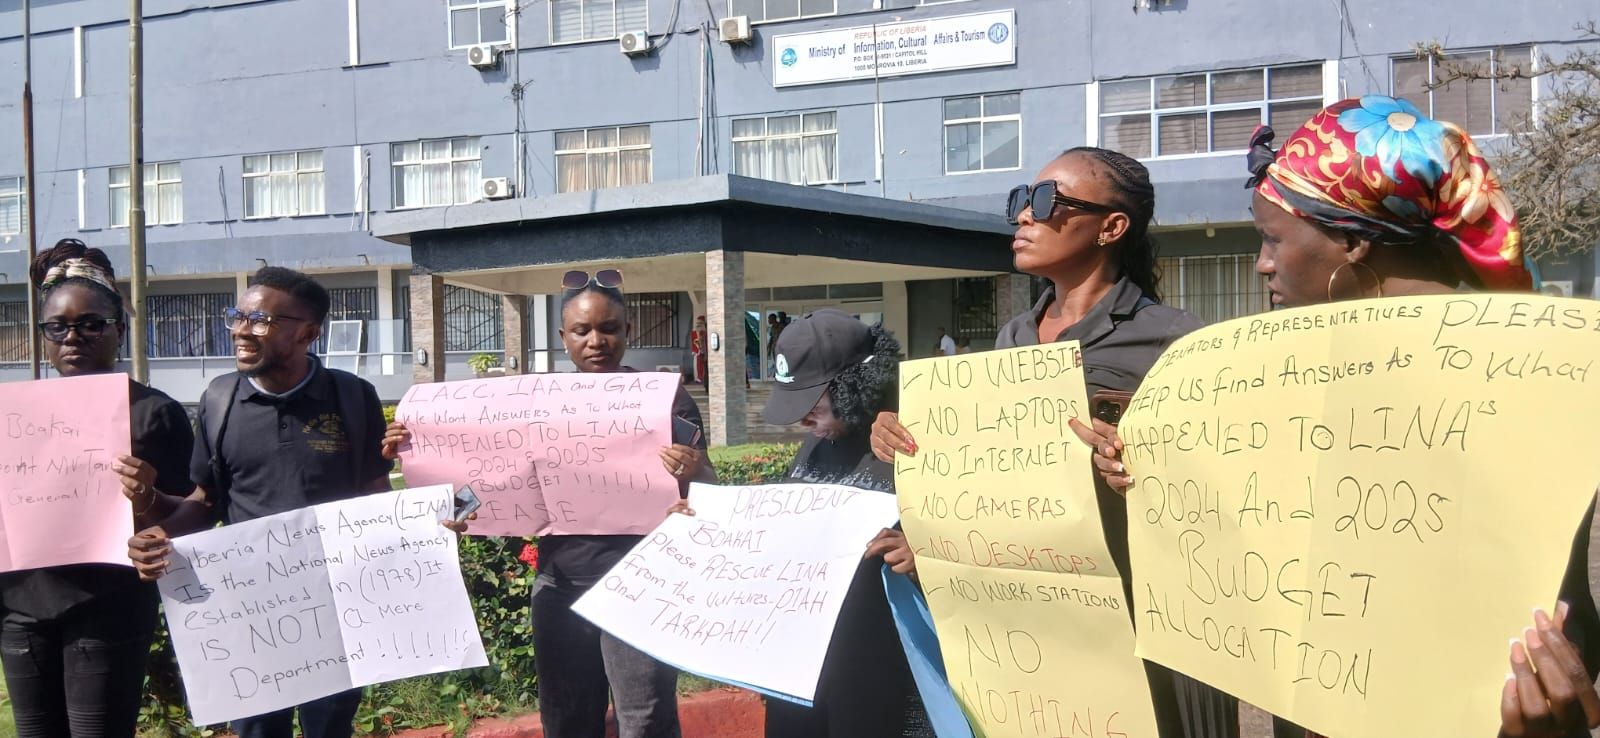 REPUBLIC OF LIBERIA
Ministry of Information, Cultural Affairs & Tourism
1000 MONROVIA 10, LIBERIA
Boakai
General!!
Liberia News Agency (LINA)
Is the National News Agency
established in (1978) It
IS NOT a mere
Department !!!!!!!
LACC, IAA and GAC
We Want ANSWERS As To What
HAPPENED TO LINA
2024 & 2025
BUDGET !!!!!!
PRESIDENT
BOAKAI
please RESCUE LINA
from the vultures-PIAH
and TARKPAH!!
NO WEBSITE
NO LAPTOPS
NO INTERNET
NO CAMERAS
NO DESKTOPS
NO WORK STATIONS
NO
NOTHING
SENATORS & REPRESENTATIVES PLEASE
HELP US find Answers As To What
HAPPENED TO LINA's
2024 And 2025
BUDGET
ALLOCATION